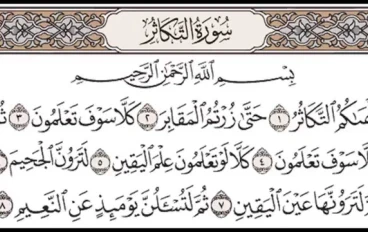 سُورَةُ التَّكَاثُرِ
بِسْمِ اللَّهِ الرَّحْمَٰنِ الرَّحِيمِ
ـهَىٰكُمُ التَّكَاثُرُ ١ حَتَّىٰ زُرْتُمُ الْمَقَابِرَ ٢ كَلَّا سَوْفَ تَعْلَمُونَ ٣ ثُـ
ـلَّا سَوْفَ تَعْلَمُونَ ٤ كَلَّا لَوْ تَعْلَمُونَ عِلْمَ الْيَقِينِ ٥ لَتَرَوُنَّ الْجَحِيمَ
لَتَرَوُنَّهَا عَيْنَ الْيَقِينِ ٧ ثُمَّ لَتُسْـَٔلُنَّ يَوْمَئِذٍ عَنِ النَّعِيمِ ٨